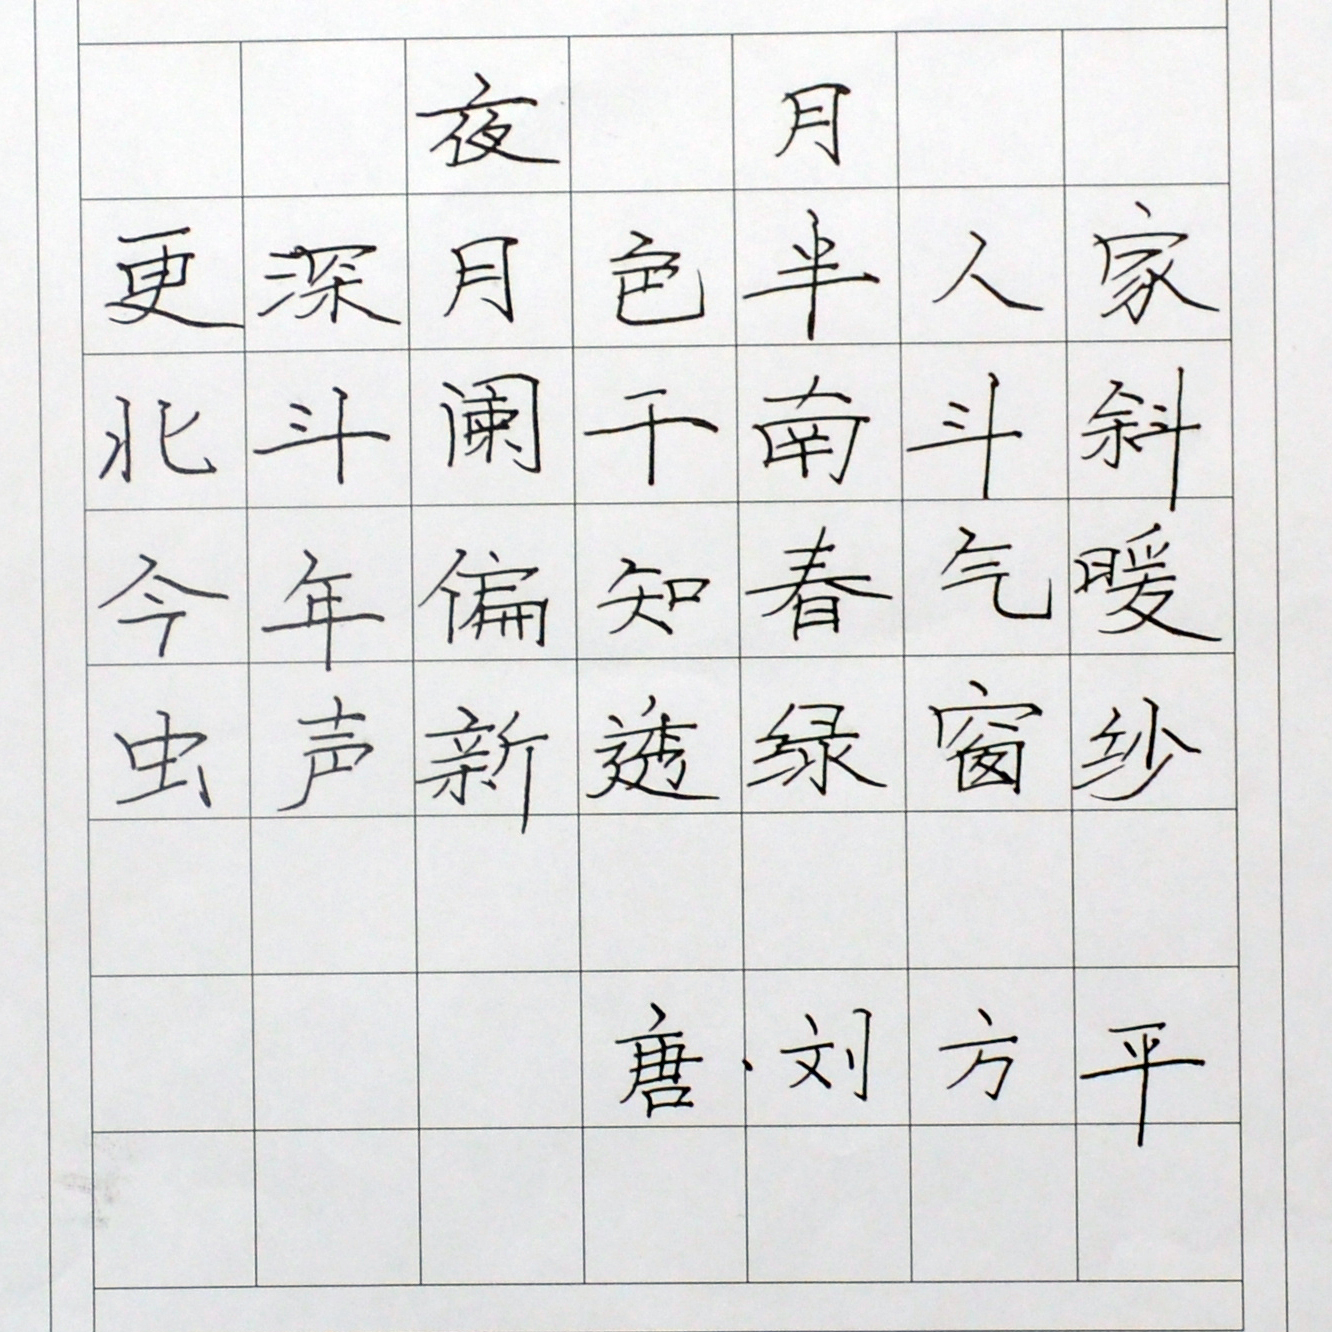 夜月
更深月色半人家
北斗阑干南斗斜
今年偏知春气暖
虫声新透绿窗纱
唐·刘方平